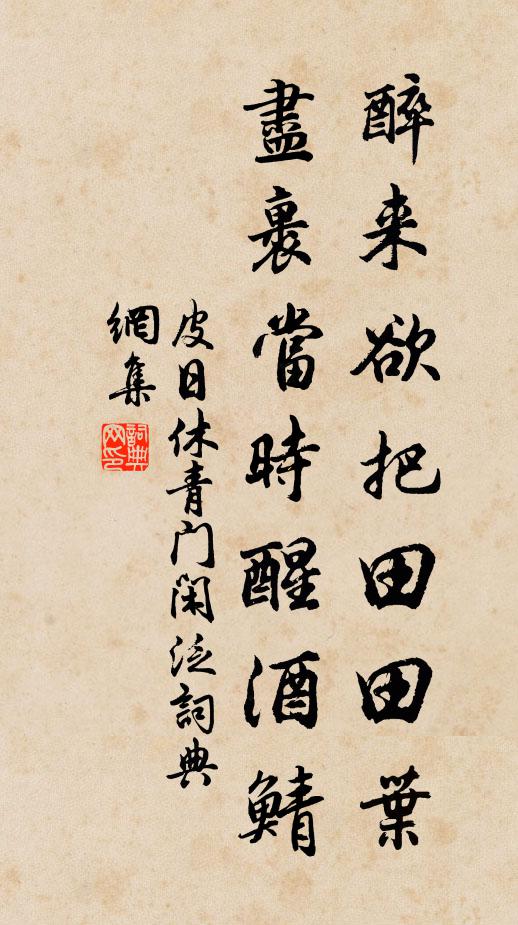 醉来欲把田田葉
盡裹當時醒酒鯖
皮日休青门闲泛詞典
網集
詞典网印